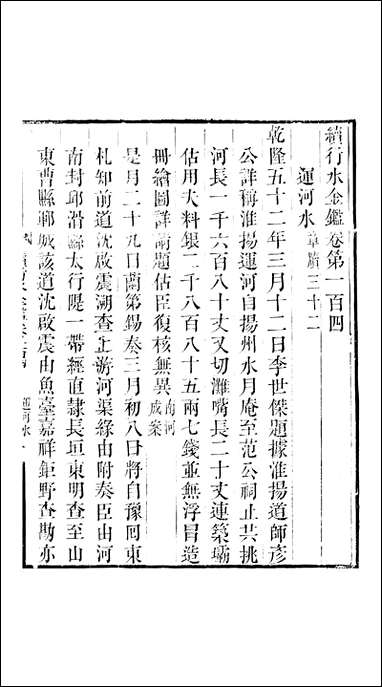 續行水金鑑卷第一百四
運河水章牘三十二
乾隆五十二年三月十二日李世傑題據淮揚道師彥
公詳稱淮揚運河自揚州水月庵至范公祠止共挑
河長一千六百八十丈又切灘嘴長二十丈連築壩
估用夫料銀二千八百八十五兩七錢並無浮冒造
冊繪圖詳請題估臣復核無異南河成案
是月二十九日蘭第錫奏三月初八日將自豫回東
札知前道沈啟震湖查上游河渠緣由附奏臣由河
南封邱滑縣太行隄一帶經直隸長垣東明查至山
東曹縣鄆城該道沈啟震由魚臺嘉祥鉅野查勘亦
運河水